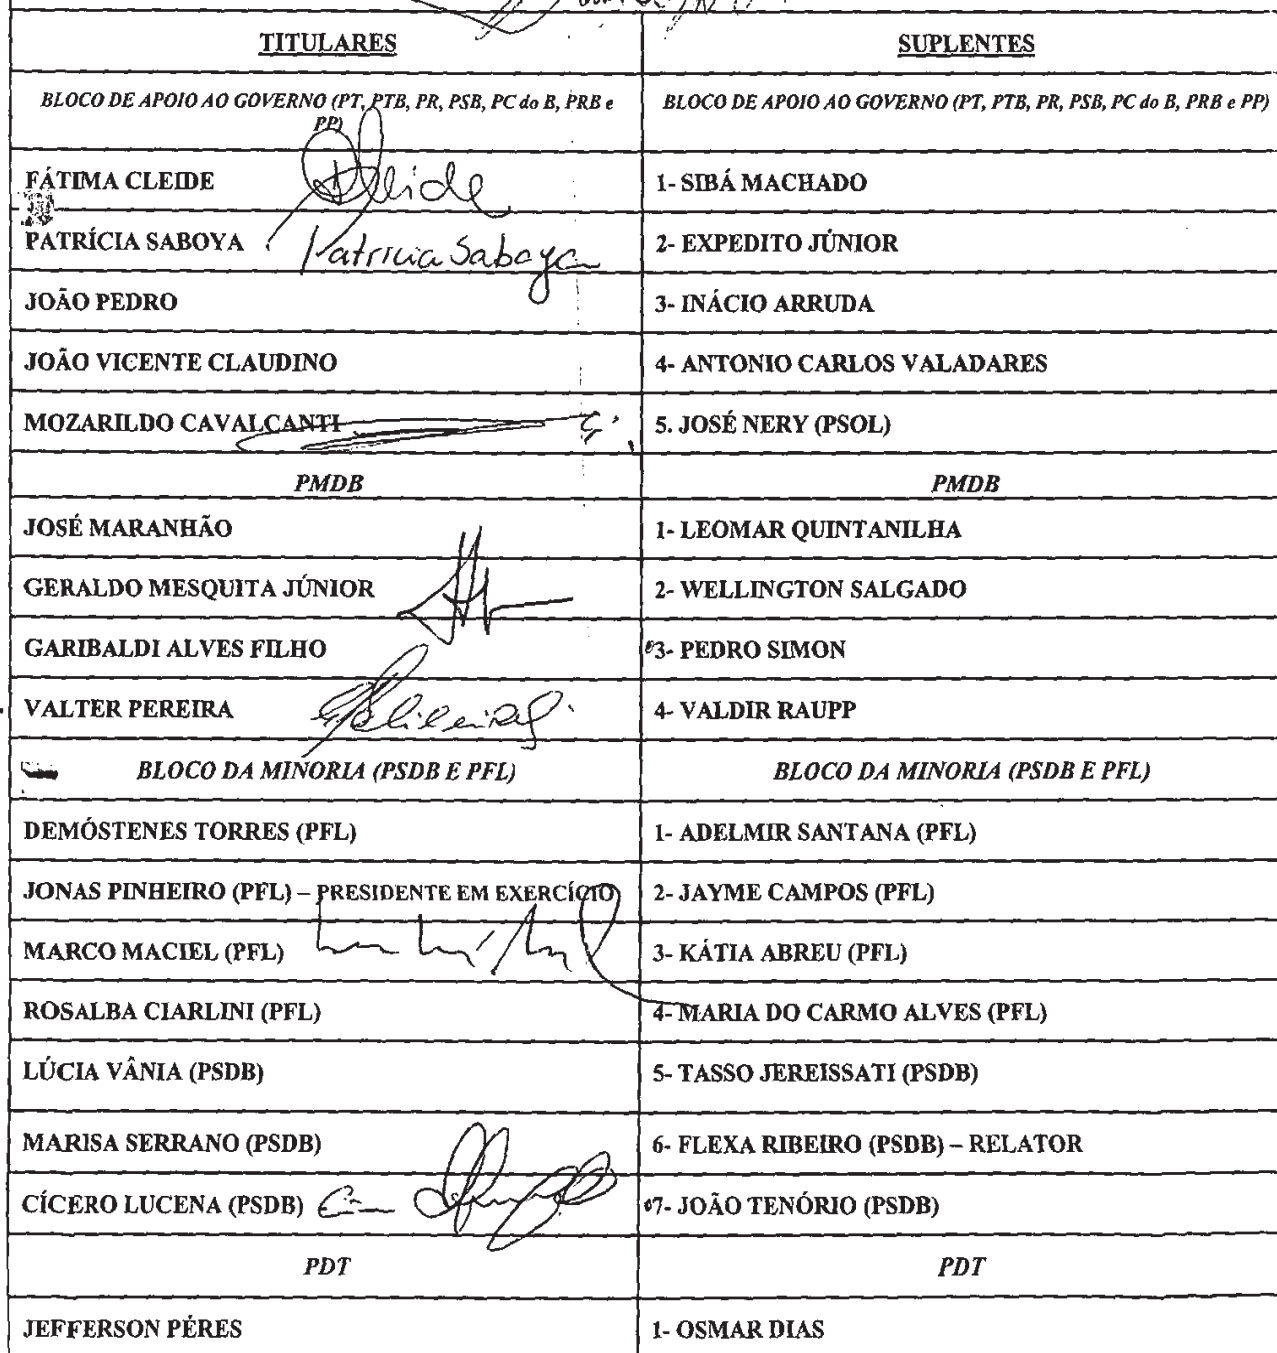 TITULARES SUPLENTES
BLOCO DE APOIO AO GOVERNO (PT, PTB, PR, PSB, PC do B, PRB e PP) BLOCO DE APOIO AO GOVERNO (PT, PTB, PR, PSB, PC do B, PRB e PP)
FÁTIMA CLEIDE Cleide 1- SIBÁ MACHADO
PATRÍCIA SABOYA Patricia Saboya 2- EXPEDITO JÚNIOR
JOÃO PEDRO 3- INÁCIO ARRUDA
JOÃO VICENTE CLAUDINO 4- ANTONIO CARLOS VALADARES
MOZARILDO CAVALCANTI 5. JOSÉ NERY (PSOL)
PMDB PMDB
JOSÉ MARANHÃO 1- LEOMAR QUINTANILHA
GERALDO MESQUITA JÚNIOR 2- WELLINGTON SALGADO
GARIBALDI ALVES FILHO 3- PEDRO SIMON
VALTER PEREIRA 4- VALDIR RAUPP
BLOCO DA MINORIA (PSDB E PFL) BLOCO DA MINORIA (PSDB E PFL)
DEMÓSTENES TORRES (PFL) 1- ADELMIR SANTANA (PFL)
JONAS PINHEIRO (PFL) – PRESIDENTE EM EXERCÍCIO 2- JAYME CAMPOS (PFL)
MARCO MACIEL (PFL) 3- KÁTIA ABREU (PFL)
ROSALBA CIARLINI (PFL) 4- MARIA DO CARMO ALVES (PFL)
LÚCIA VÂNIA (PSDB) 5- TASSO JEREISSATI (PSDB)
MARISA SERRANO (PSDB) 6- FLEXA RIBEIRO (PSDB) – RELATOR
CÍCERO LUCENA (PSDB) 7- JOÃO TENÓRIO (PSDB)
PDT PDT
JEFFERSON PÉRES 1- OSMAR DIAS